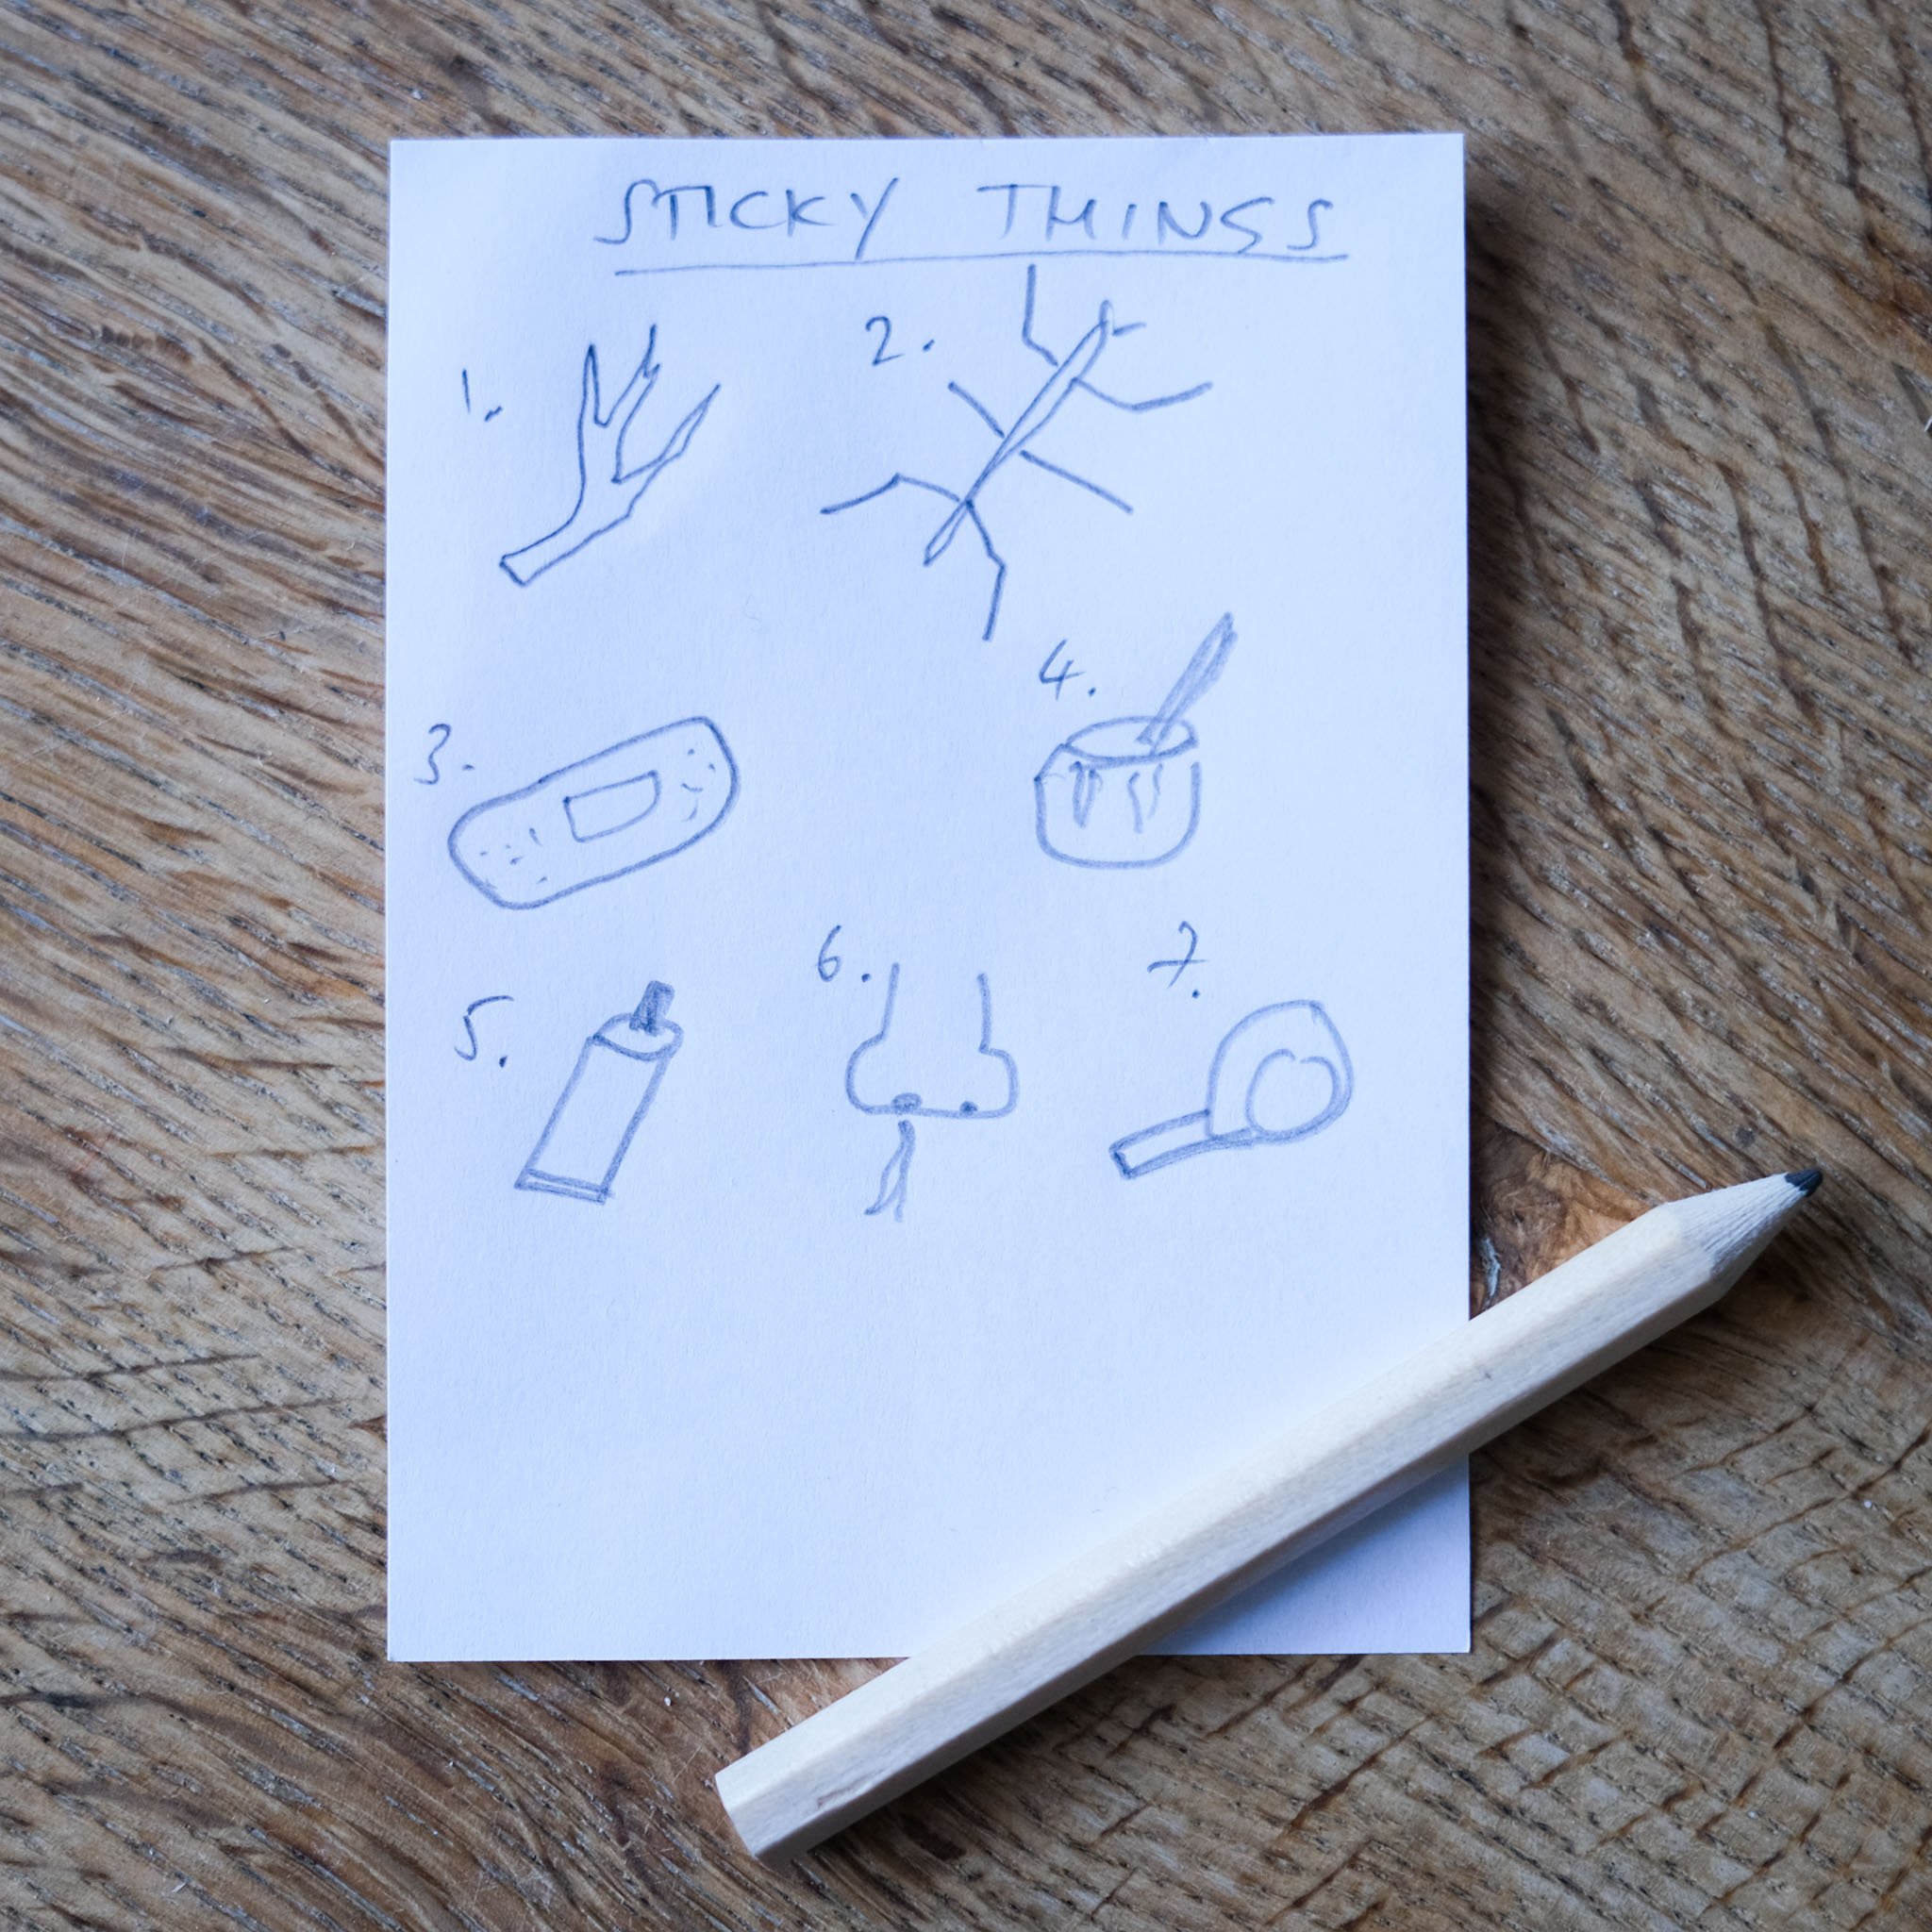 STICKY THINGS
1.
2.
3.
4.
5.
6.
7.